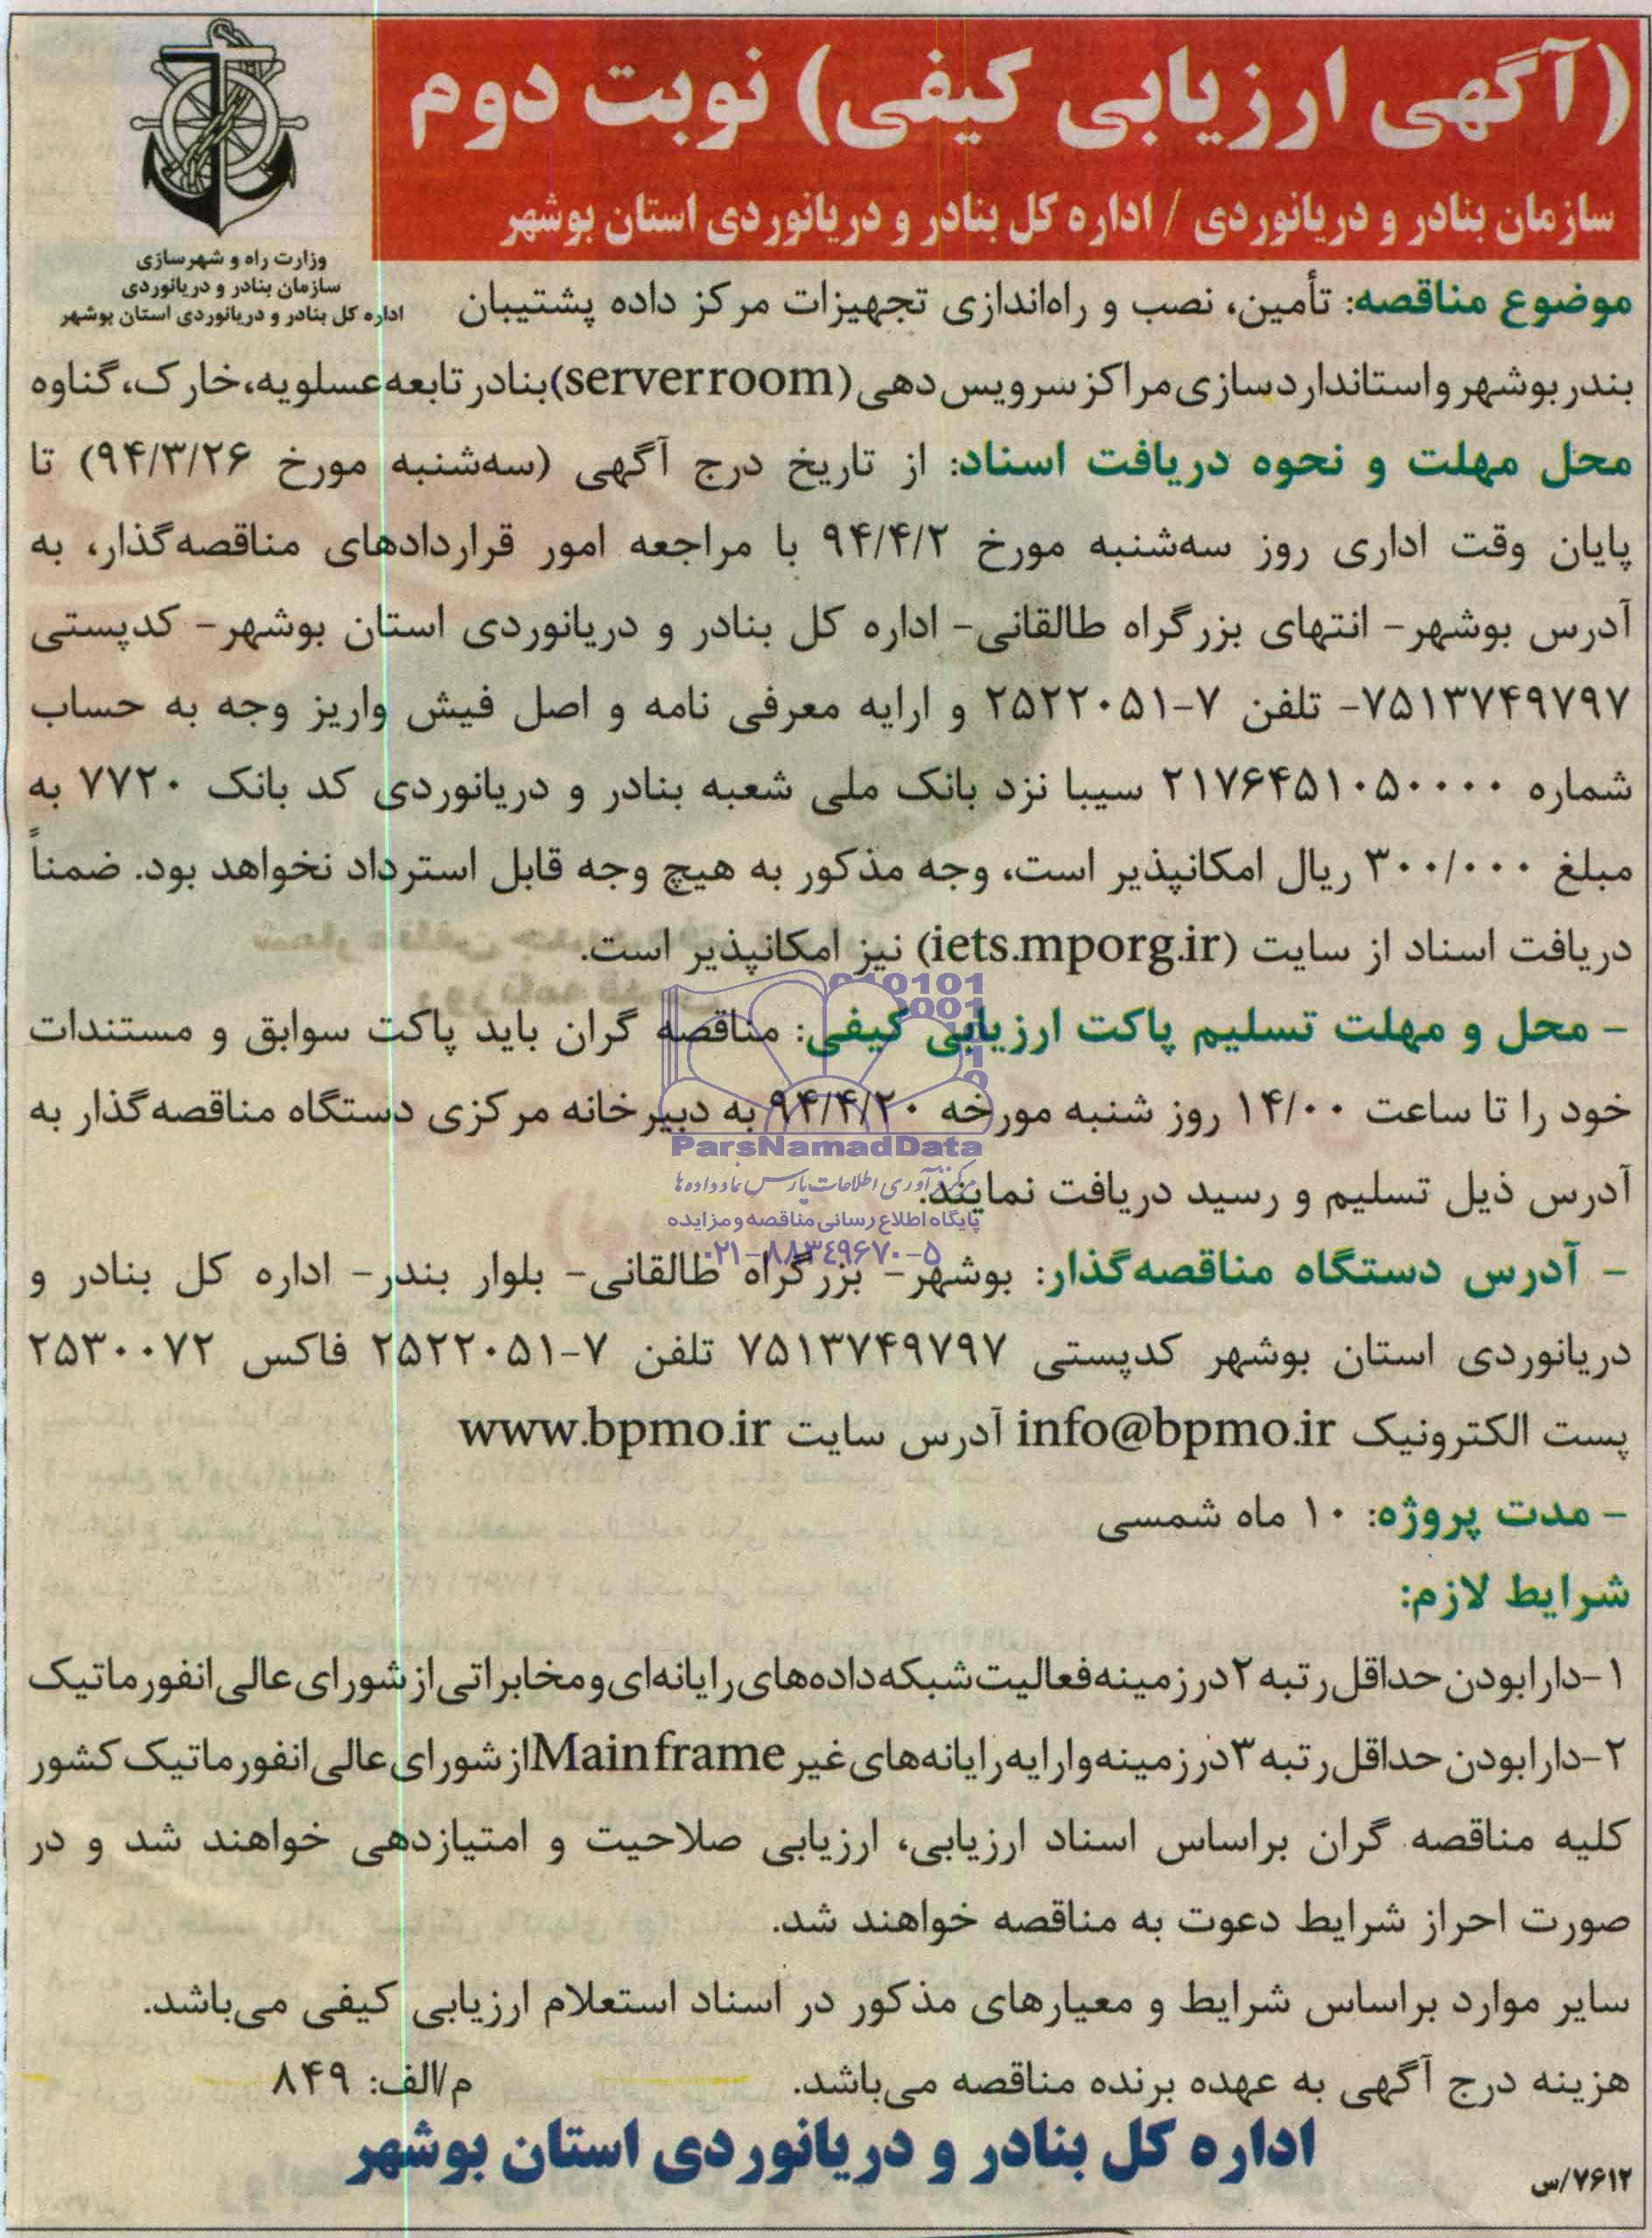 (آگهی ارزیابی کیفی) نوبت دوم
سازمان بنادر و دریانوردی / اداره کل بنادر و دریانوردی استان بوشهر
وزارت راه و شهرسازی
سازمان بنادر و دریانوردی
اداره کل بنادر و دریانوردی استان بوشهر
موضوع مناقصه: تأمین، نصب و راه‌اندازی تجهیزات مرکز داده پشتیبان
بندر بوشهر و استانداردسازی مراکز سرویس‌دهی (server room) بنادر تابعه عسلویه، خارک، گناوه
محل مهلت و نحوه دریافت اسناد: از تاریخ درج آگهی (سه‌شنبه مورخ ۹۴/۳/۲۶) تا
پایان وقت اداری روز سه‌شنبه مورخ ۹۴/۴/۲ با مراجعه امور قراردادهای مناقصه‌گذار، به
آدرس بوشهر- انتهای بزرگراه طالقانی- اداره کل بنادر و دریانوردی استان بوشهر- کدپستی
۷۵۱۳۷۴۹۷۹۷- تلفن ۷-۲۵۲۲۰۵۱ و ارایه معرفی نامه و اصل فیش واریز وجه به حساب
شماره ۲۱۷۶۴۵۱۰۵۰۰۰۰ سیبا نزد بانک ملی شعبه بنادر و دریانوردی کد بانک ۷۷۲۰ به
مبلغ ۳۰۰/۰۰۰ ریال امکانپذیر است، وجه مذکور به هیچ وجه قابل استرداد نخواهد بود. ضمناً
دریافت اسناد از سایت (iets.mporg.ir) نیز امکانپذیر است.
- محل و مهلت تسلیم پاکت ارزیابی کیفی: مناقصه گران باید پاکت سوابق و مستندات
خود را تا ساعت ۱۴/۰۰ روز شنبه مورخه ۹۴/۴/۲۰ به دبیرخانه مرکزی دستگاه مناقصه‌گذار به
ParsNamadData
آدرس ذیل تسلیم و رسید دریافت نمایند.
پایگاه اطلاع رسانی مناقصه و مزایده
۰۲۱-۸۸۳۴۹۶۷۰-۵
- آدرس دستگاه مناقصه‌گذار: بوشهر- بزرگراه طالقانی- بلوار بندر- اداره کل بنادر و
دریانوردی استان بوشهر کدپستی ۷۵۱۳۷۴۹۷۹۷ تلفن ۷-۲۵۲۲۰۵۱ فاکس ۲۵۳۰۰۷۲
پست الکترونیک info@bpmo.ir آدرس سایت www.bpmo.ir
- مدت پروژه: ۱۰ ماه شمسی
شرایط لازم:
۱-دارا بودن حداقل رتبه ۲ در زمینه فعالیت شبکه داده‌های رایانه‌ای و مخابراتی از شورای عالی انفورماتیک
۲-دارا بودن حداقل رتبه ۳ در زمینه و ارایه رایانه‌های غیر Main frame از شورای عالی انفورماتیک کشور
کلیه مناقصه گران براساس اسناد ارزیابی، ارزیابی صلاحیت و امتیازدهی خواهند شد و در
صورت احراز شرایط دعوت به مناقصه خواهند شد.
سایر موارد براساس شرایط و معیارهای مذکور در اسناد استعلام ارزیابی کیفی می‌باشد.
هزینه درج آگهی به عهده برنده مناقصه می‌باشد. م/الف: ۸۴۹
اداره کل بنادر و دریانوردی استان بوشهر
۷۶۱۲/س